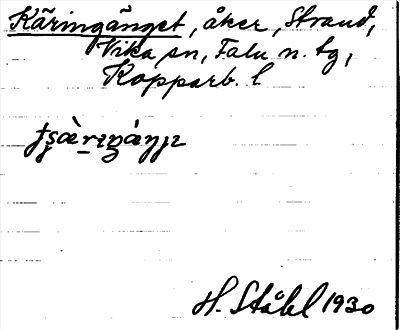 Käringänget, åker, Strand,
Vika sn, Falu n. tg,
Kopparb. l
H. Ståhl 1930